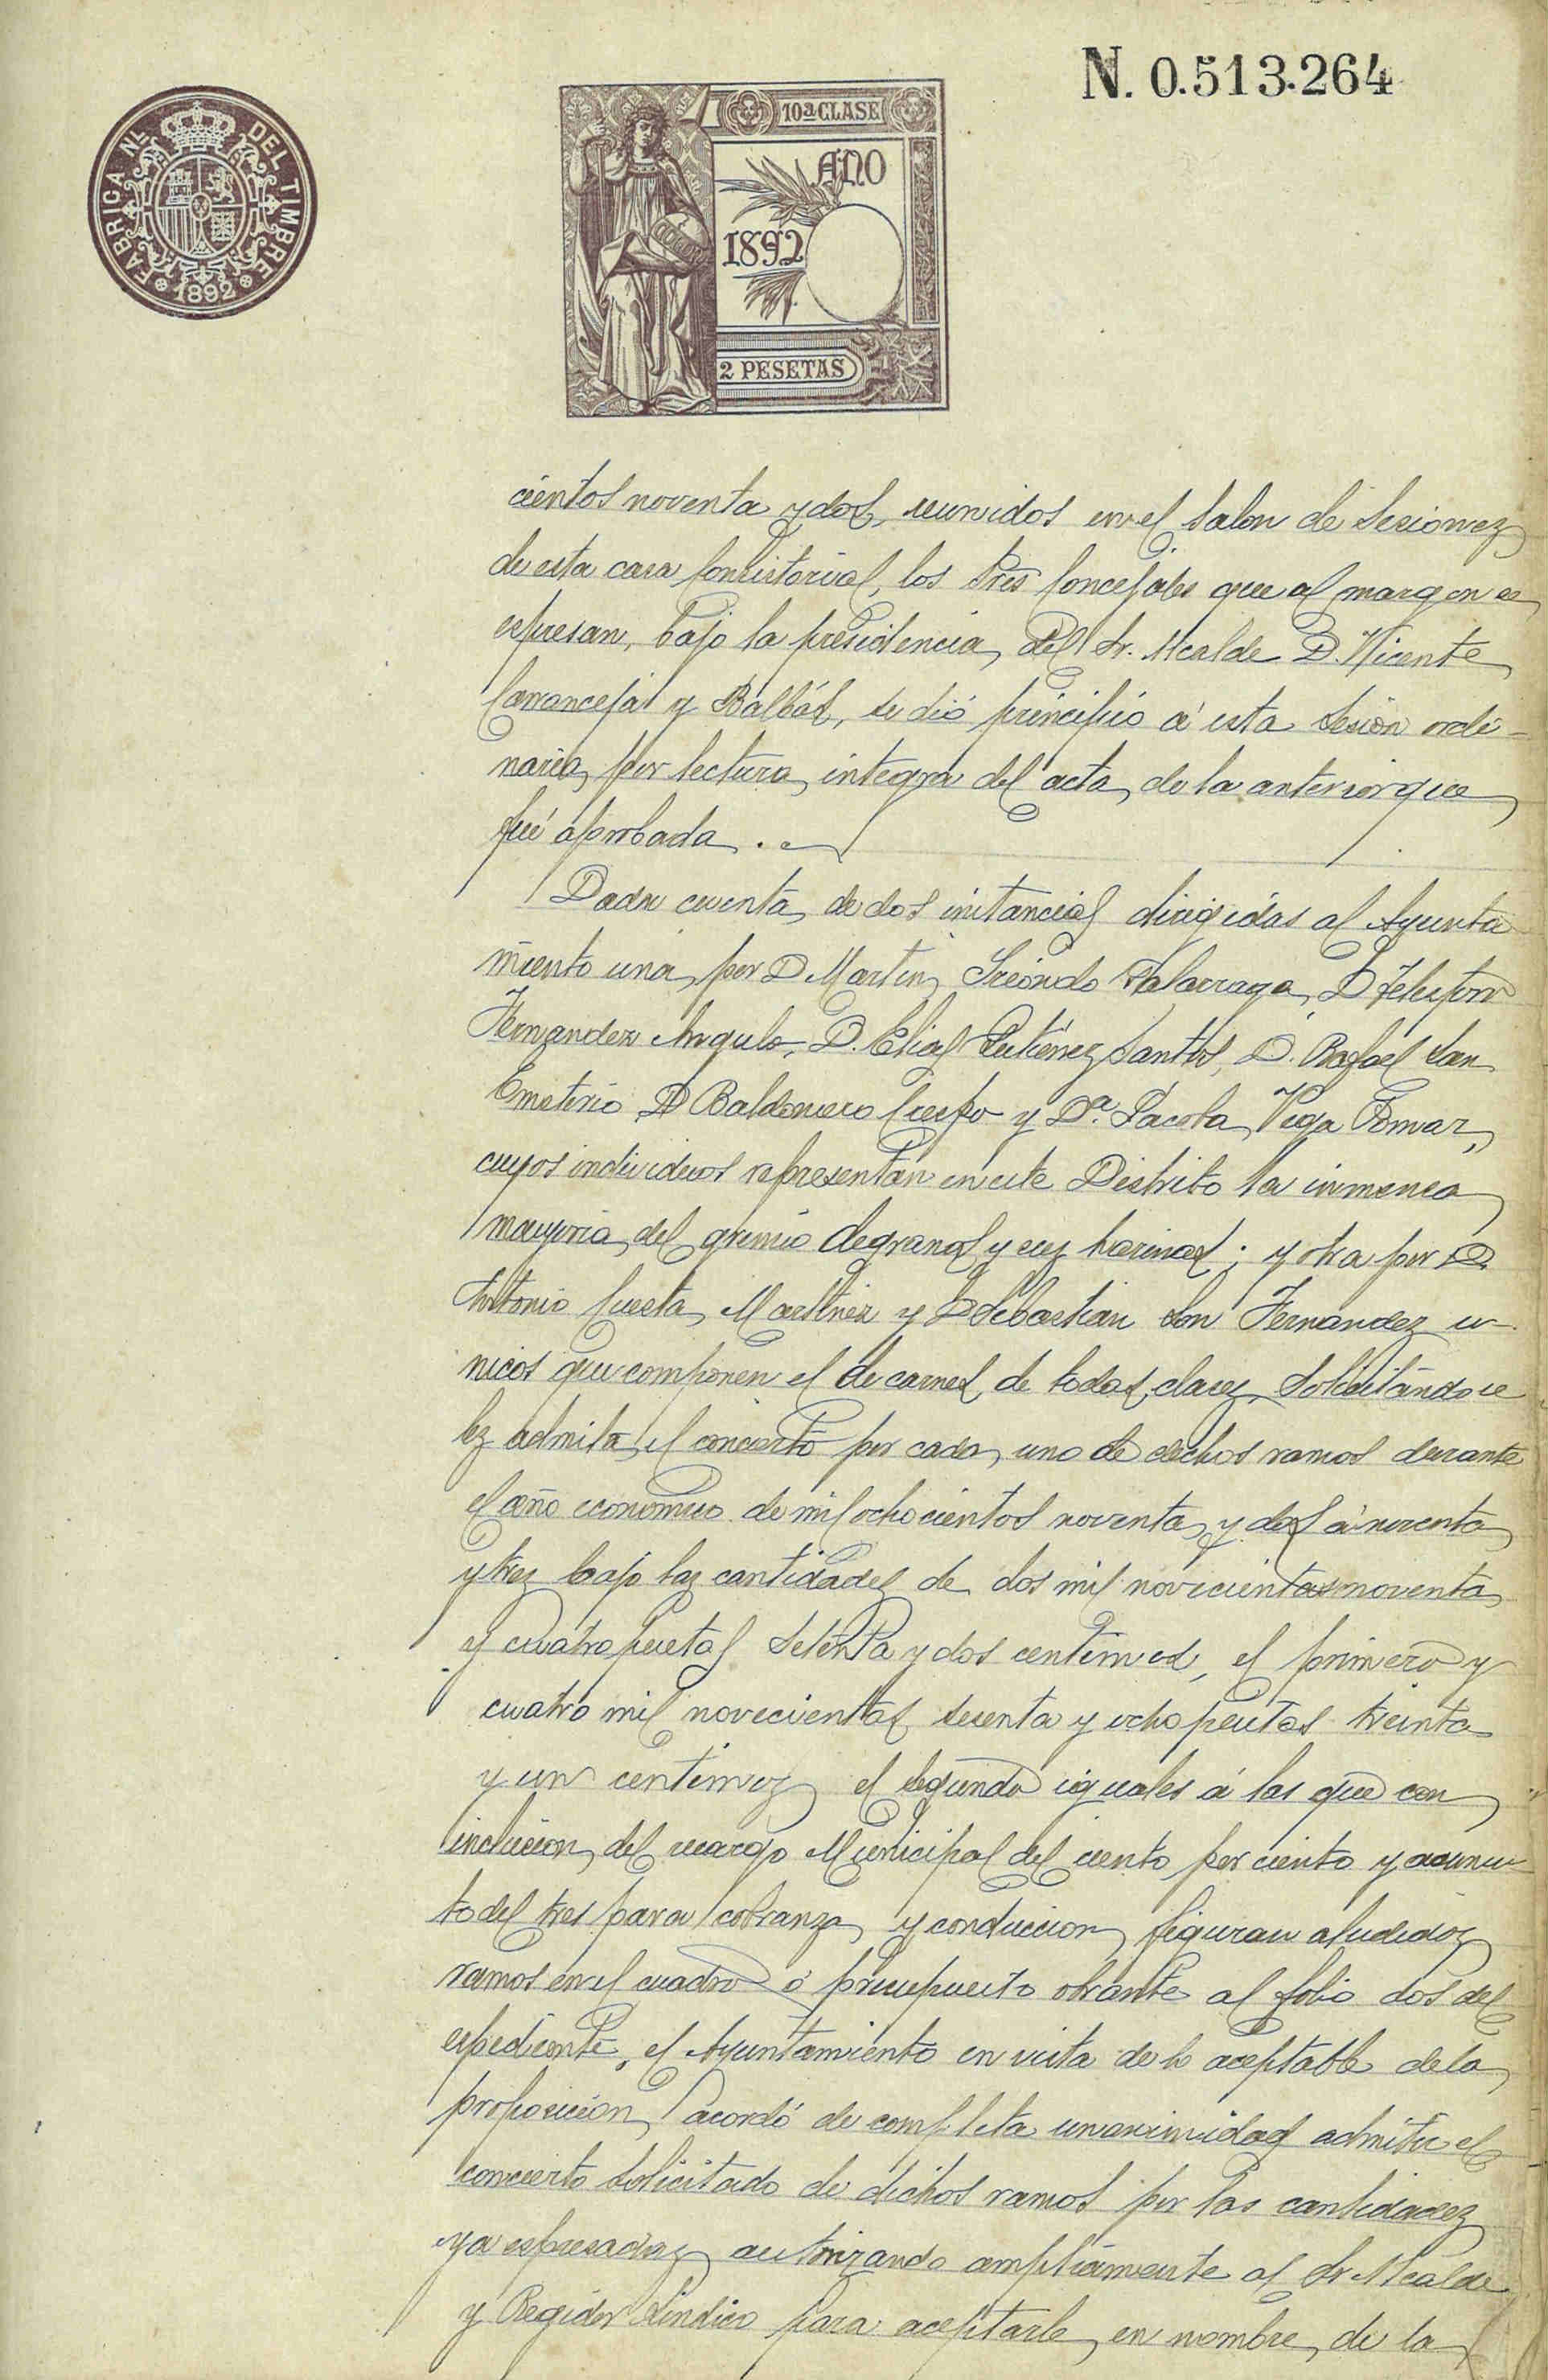 N. 0.513.264
FABRICA NL. DEL TIMBRE
1892
10ª CLASE
AÑO
1892
2 PESETAS
cientos noventa y dos, reunidos en el Salon de Sesiones
de esta casa Consistorial, los Sres Concejales que al margen se
espresan, bajo la presidencia del Sr. Alcalde D. Vicente
Carranceja y Balbás, se dió principio á esta Sesión ordi-
naria, por lectura integra del acta de la anterior que
fué aprobada.
Dada cuenta de dos instancias dirigidas al Ayunta
miento una por D Martin Iriondo Galarraga, D Telesforo
Fernandez Angulo, D. Elias Gutiérrez Santos, D. Rafael San
Emeterio D Baldomero Crespo y Dª. Jacoba Vega Tomar,
cuyos individuos representan en este Distrito la inmensa
mayoria del gremio de granos y sus harinas; y otra por D
Antonio Cuesta Martinez y D Sebastian Son Fernandez u-
nicos que componen el de carnes de todas clases, Solicitándose
les admita el concierto por cada uno de dichos ramos durante
el año economico de mil ochocientos noventa y dos á noventa
y tres bajo las cantidades de dos mil novecientas noventa
y cuatro pesetas setenta y dos centimos, el primero y
cuatro mil novecientas sesenta y ocho pesetas treinta
y un centimos el segundo iguales á las que con
inclusion del recargo Municipal del ciento por ciento y aumen
to del tres para cobranza y conduccion figuran aludidos
ramos en el cuadro ó presupuesto obrante al folio dos del
espediente, el Ayuntamiento en vista de lo aceptable de la
proposicion, acordó de completa unanimidad admitir el
concierto solicitado de dichos ramos por las cantidades
ya espresadas autorizando ampliamente al Sr Alcalde
y Regidor Sindico para aceptarle en nombre de la